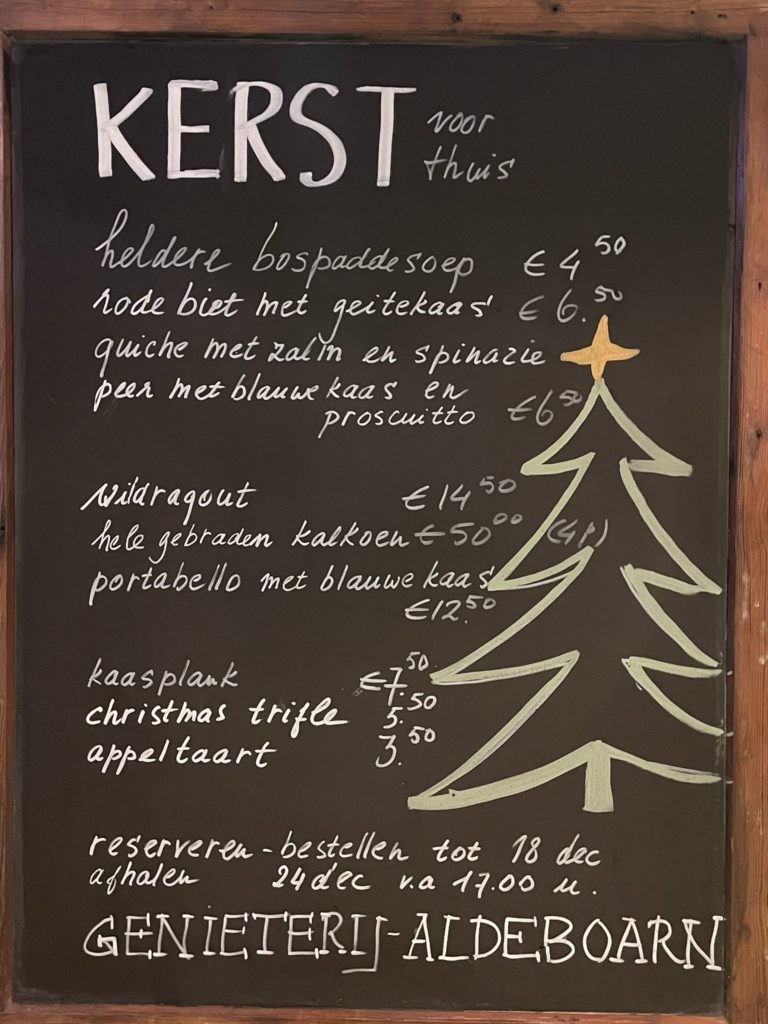 KERST voor
thuis
heldere bospaddesoep €4 50
rode biet met geitekaas €6.50
quiche met zalm en spinazie
peer met blauwe kaas en
proscuitto €6 50
wildragout €14 50
hele gebraden kalkoen €50 00 (4p)
portabello met blauwe kaas
€12.50
kaasplank €7.50
christmas trifle 5.50
appeltaart 3.50
reserveren - bestellen tot 18 dec
afhalen 24 dec v.a 17.00 u.
GENIETERIJ-ALDEBOARN